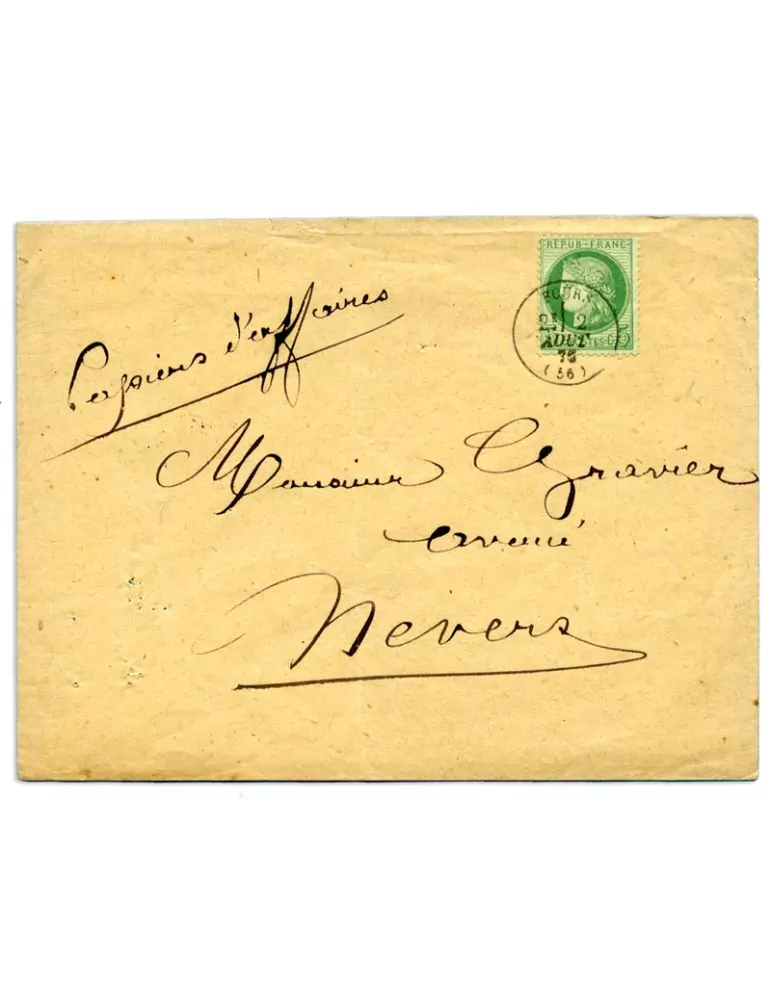 REPUB·FRANC
2
AOUT
73
(56)
Papiers d'affaires
Monsieur Gravier
avoué
Nevers